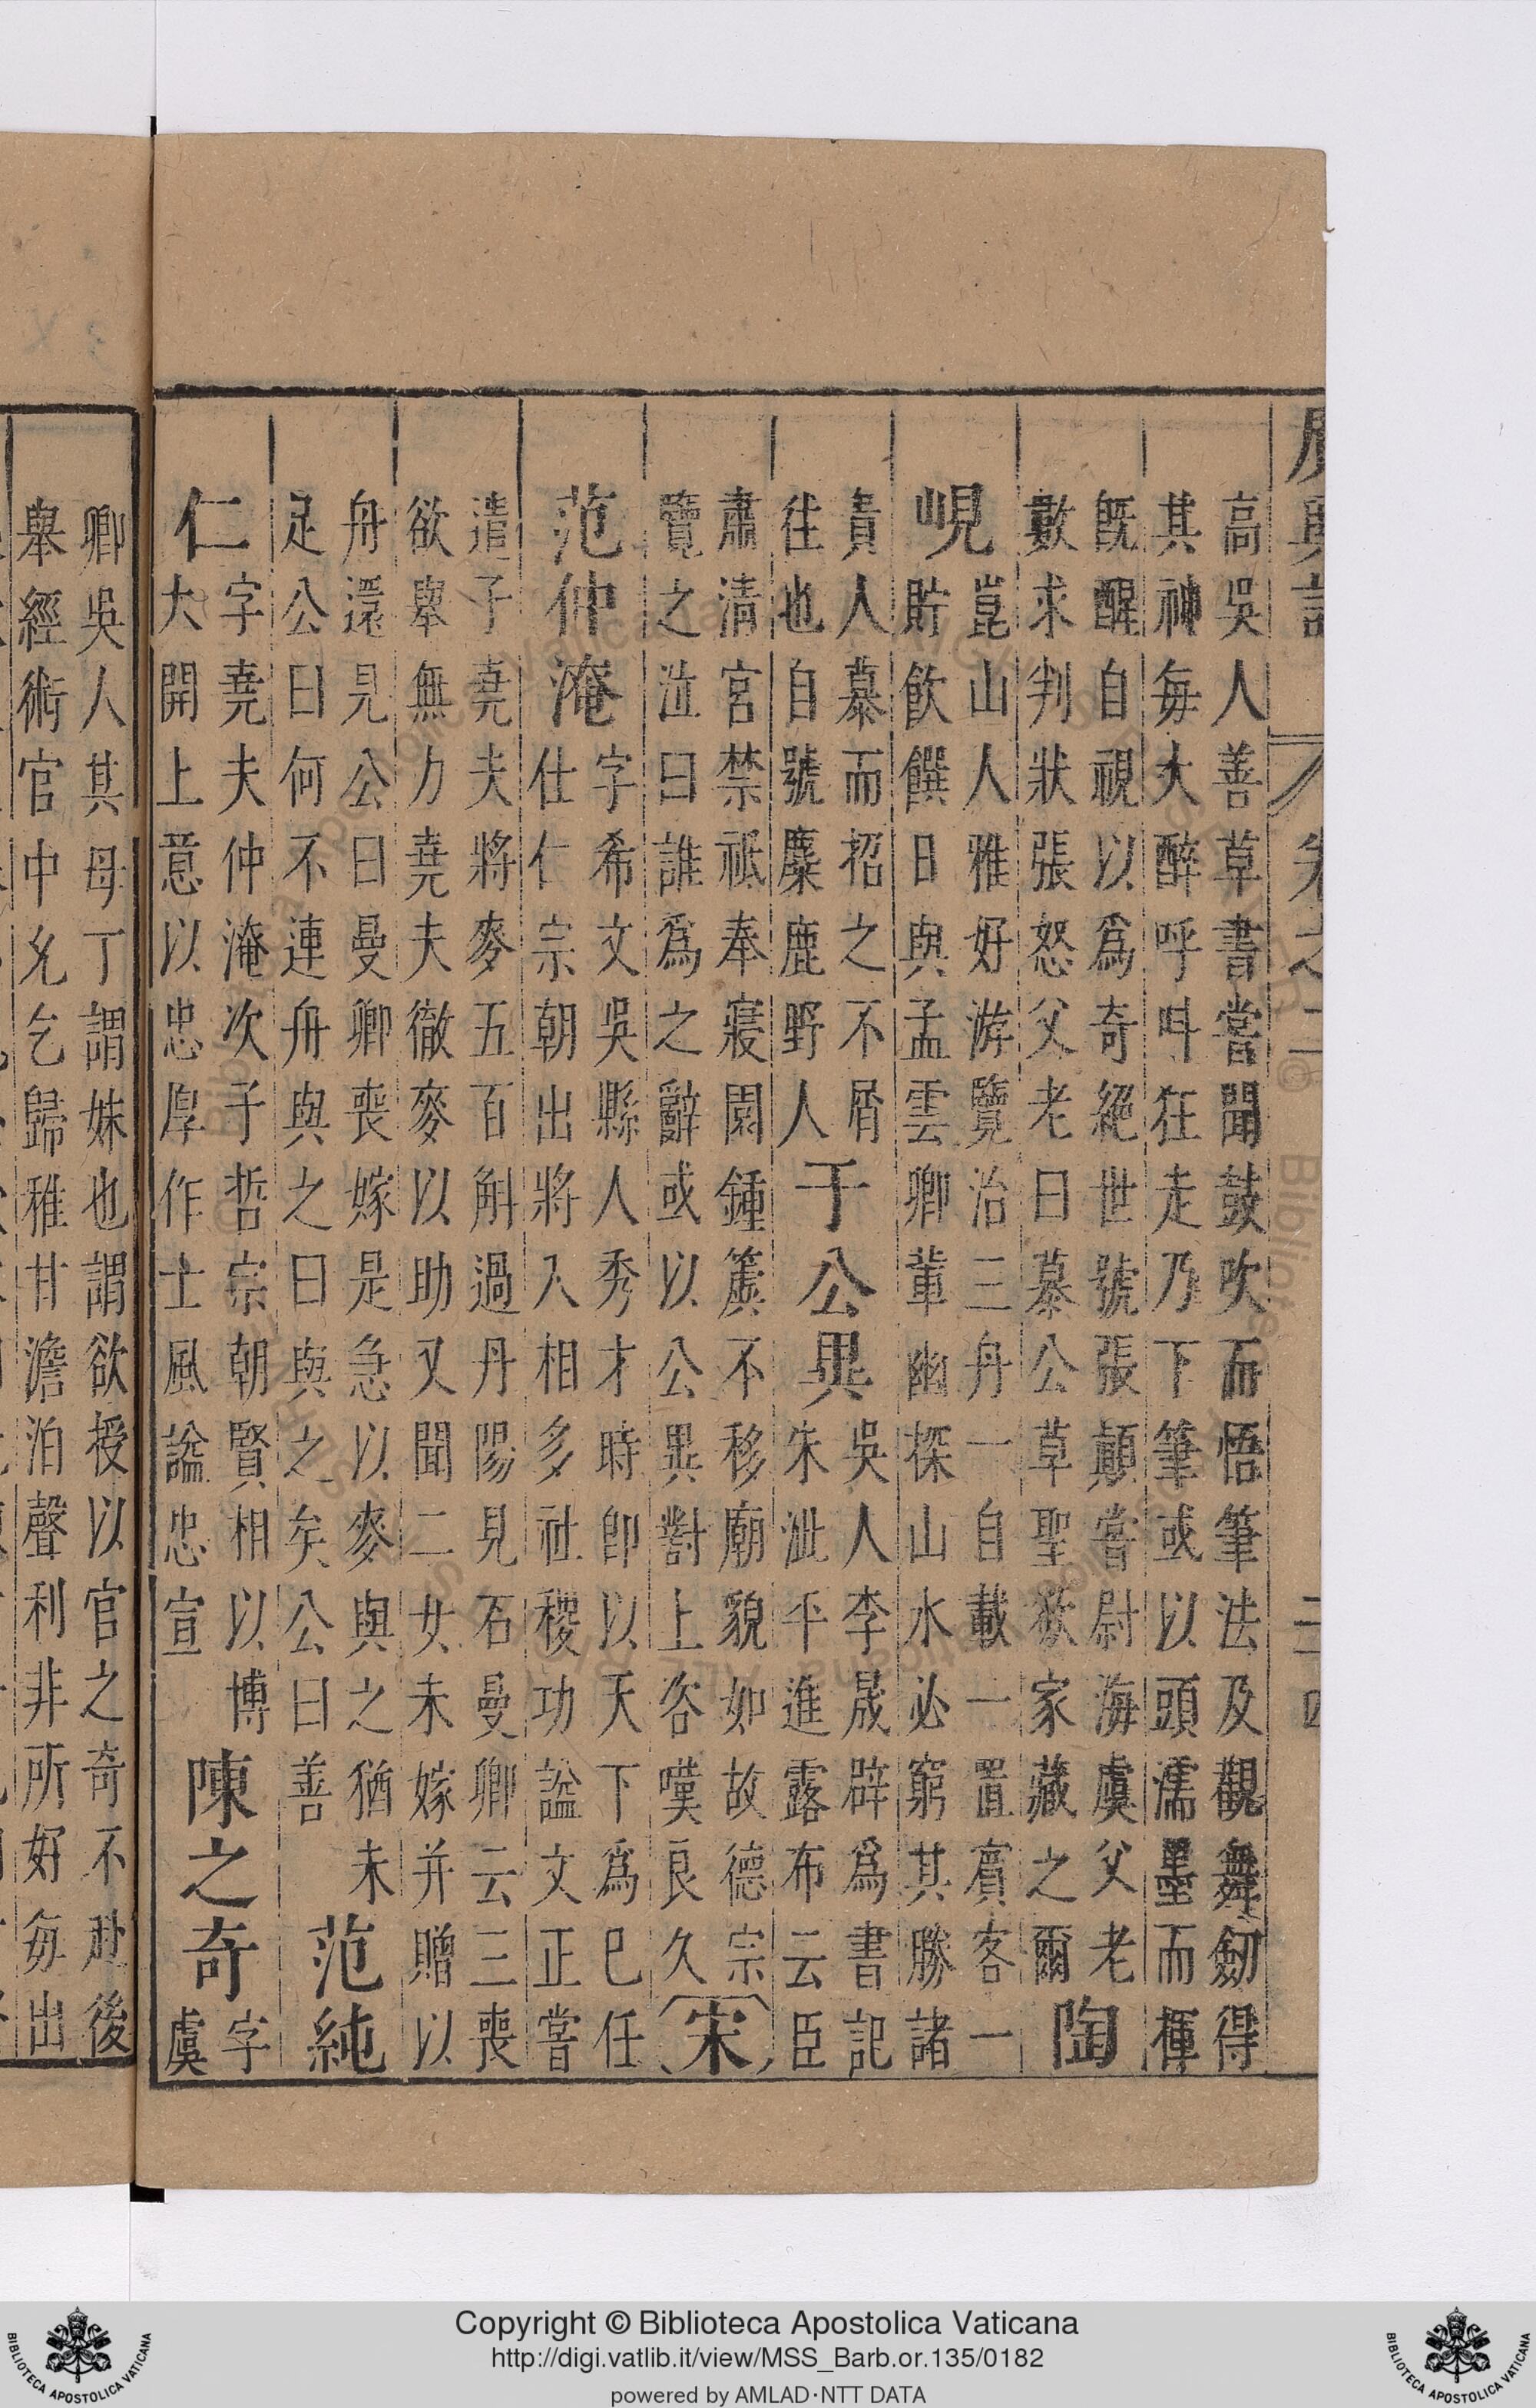 高吳人善草書嘗聞鼓吹而悟筆法及觀舞劒得
其神每大醉呼呌狂走乃下筆或以頭濡墨而揮
旣醒自視以爲奇絕世號張顛嘗尉海虞父老
數求判狀張怒父老曰慕公草聖欲家藏之爾
陶
峴
崑山人雅好游覽治三舟一自載一置賓客一
貯飲饌日與孟雲卿軰幽探山水必窮其勝諸
貴人慕而招之不屑
往也自號麋鹿野人
于公異
吳人李晟辟爲書記
朱泚平進露布云臣
肅清宮禁祗奉寢園鍾簴不移廟貌如故德宗
覽之泣曰誰爲之辭或以公異對上咨嘆良久
宋
范仲淹
字希文吳縣人秀才時卽以天下爲巳任
仕仁宗朝出將入相多社稷功謚文正嘗
遣子堯夫將麥五百斛過丹陽見石曼卿云三喪
欲舉無力堯夫徹麥以助又聞二女未嫁并贈以
舟還見公曰曼卿喪嫁是急以麥與之猶未
足公曰何不連舟與之曰與之矣公曰善
范純
仁
字堯夫仲淹次子哲宗朝賢相以博
大開上意以忠厚作士風謚忠宣
陳之奇
字
虞
卿吳人其母丁謂妹也謂欲授以官之奇不赴後
舉經術官中允乞歸雅甘澹泊聲利非所好每出
廣輿記
卷之二
Copyright © Biblioteca Apostolica Vaticana
http://digi.vatlib.it/view/MSS_Barb.or.135/0182
powered by AMLAD·NTT DATA
BIBLIOTECA APOSTOLICA VATICANA
BIBLIOTECA APOSTOLICA VATICANA